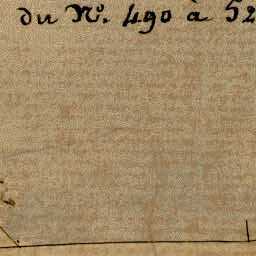 du Nº. 490 à 52